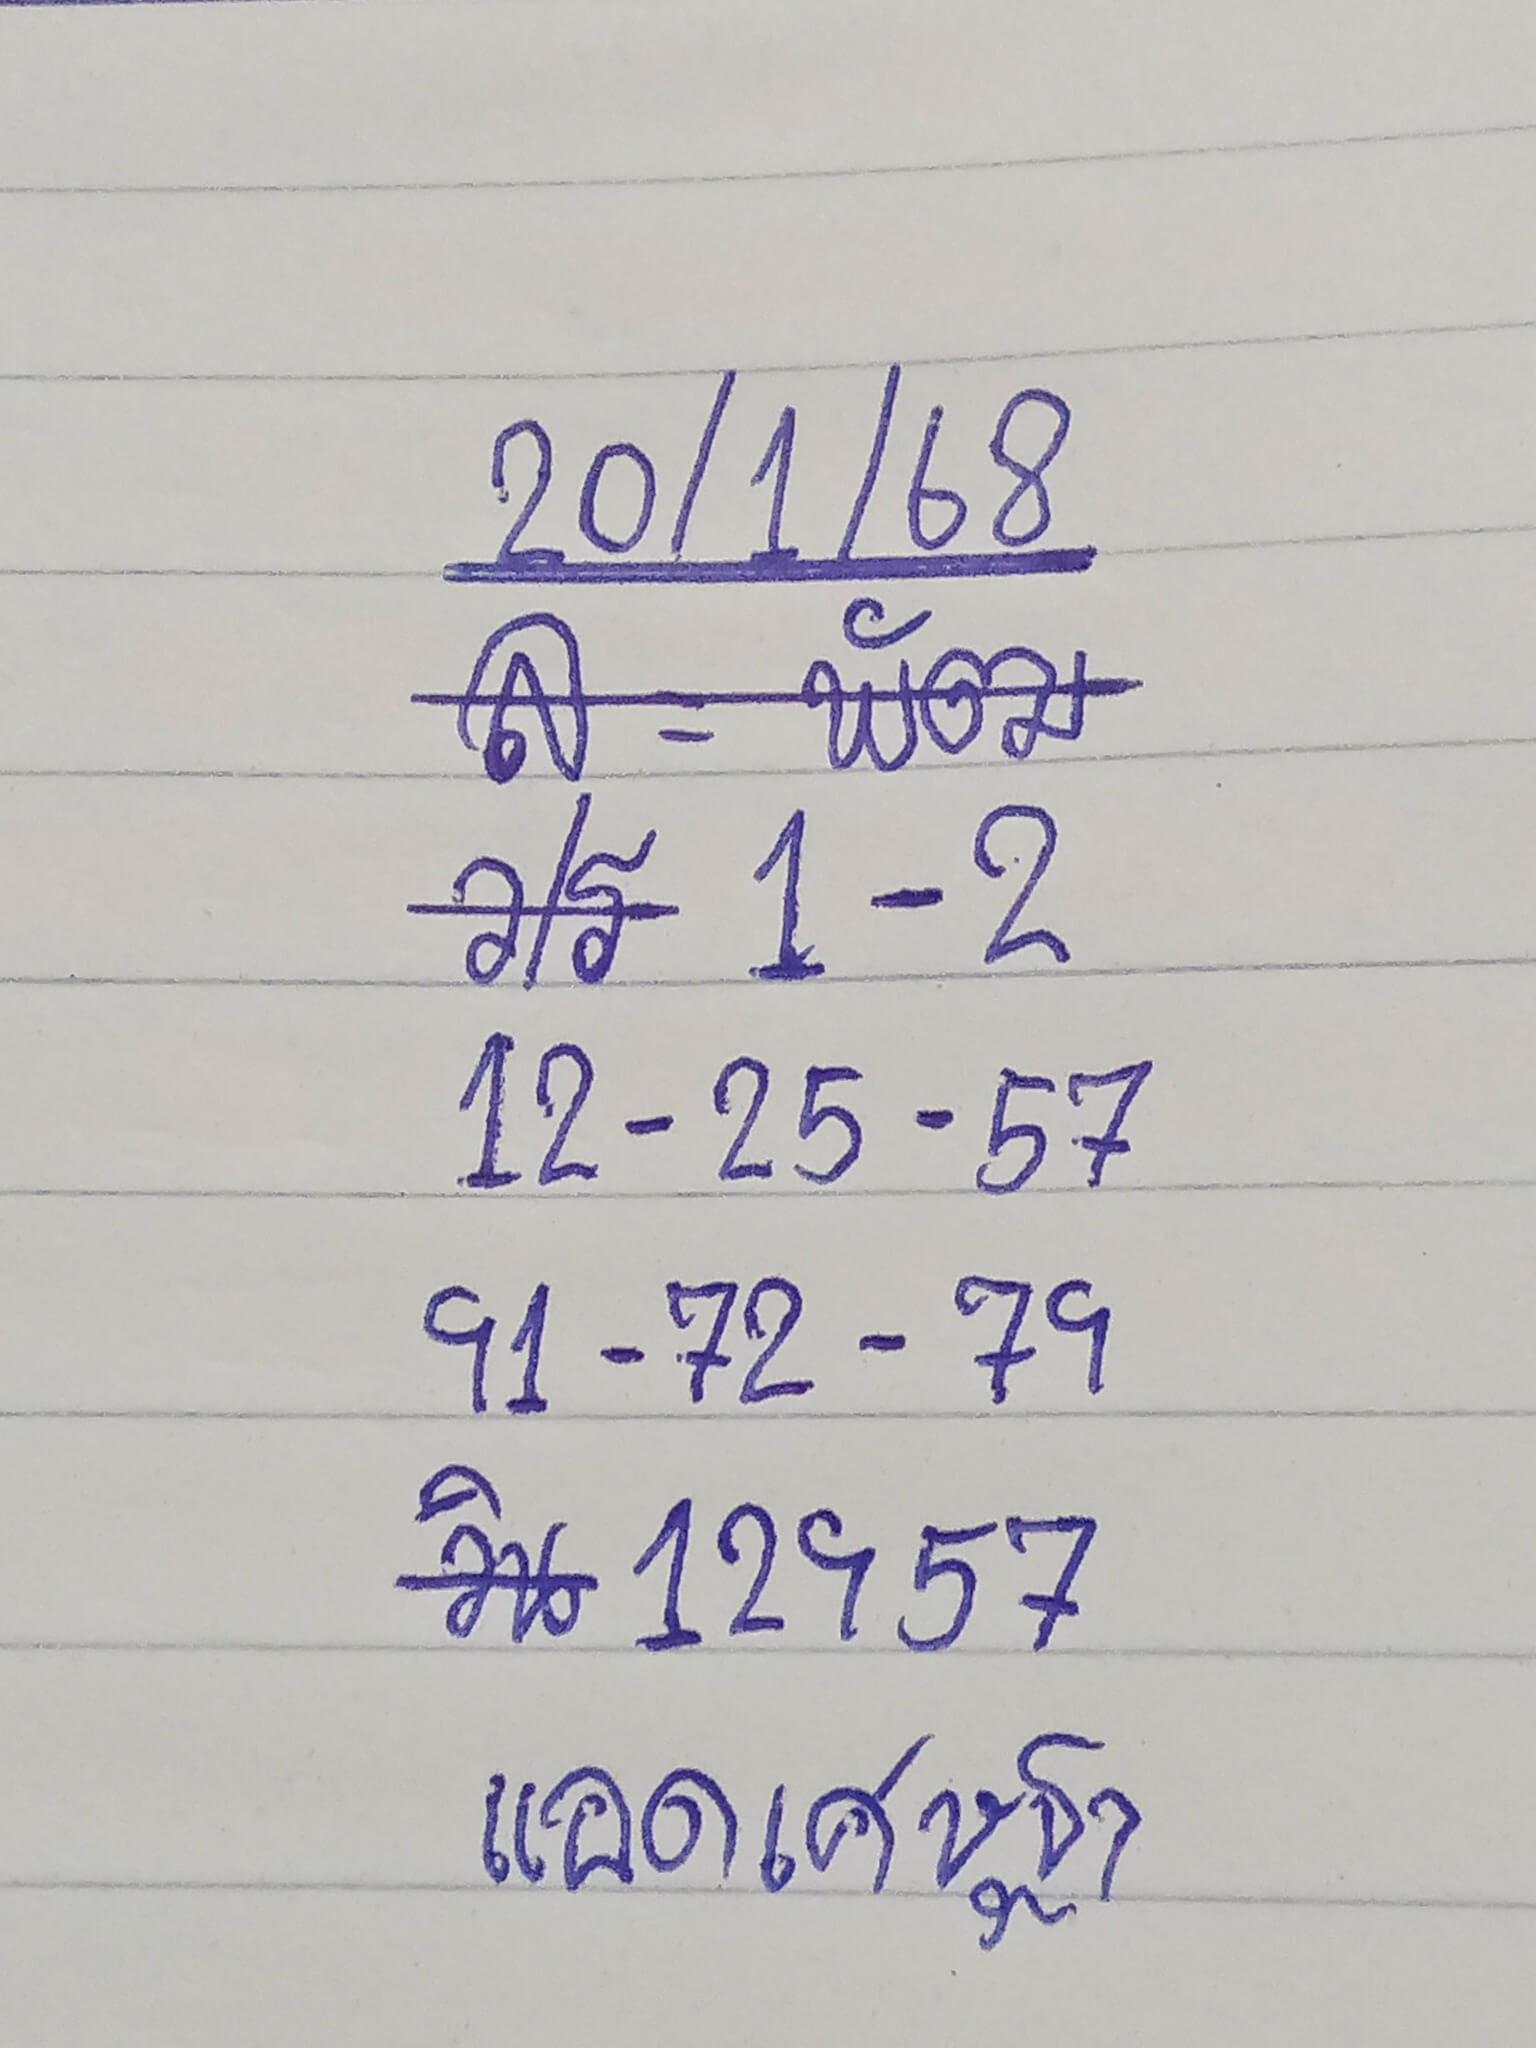 20/1/68
ล = พ้อม
ว/ร 1 - 2
12 - 25 - 57
91 - 72 - 79
วิน 12957
แอดเศษฐา